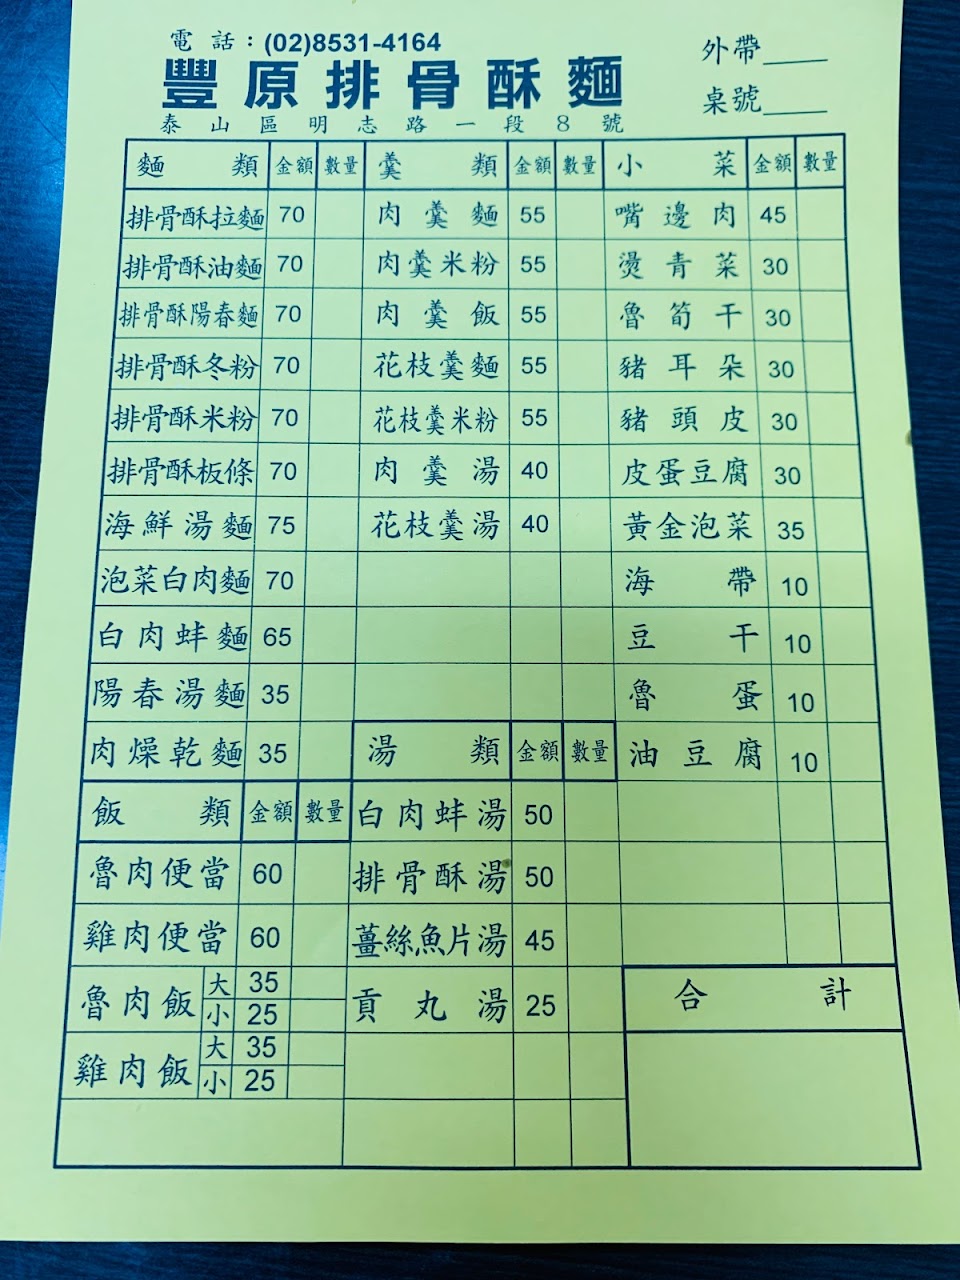 電話：(02)8531-4164
外帶____
豐原排骨酥麵
桌號____
泰山區明志路一段8號
麵類 金額 數量 羹類 金額 數量 小菜 金額 數量
排骨酥拉麵 70 肉羹麵 55 嘴邊肉 45
排骨酥油麵 70 肉羹米粉 55 燙青菜 30
排骨酥陽春麵 70 肉羹飯 55 魯筍干 30
排骨酥冬粉 70 花枝羹麵 55 豬耳朵 30
排骨酥米粉 70 花枝羹米粉 55 豬頭皮 30
排骨酥板條 70 肉羹湯 40 皮蛋豆腐 30
海鮮湯麵 75 花枝羹湯 40 黃金泡菜 35
泡菜白肉麵 70 海帶 10
白肉蚌麵 65 豆干 10
陽春湯麵 35 魯蛋 10
肉燥乾麵 35 湯類 金額 數量 油豆腐 10
飯類 金額 數量 白肉蚌湯 50
魯肉便當 60 排骨酥湯 50
雞肉便當 60 薑絲魚片湯 45
魯肉飯 大 35 小 25 貢丸湯 25 合計
雞肉飯 大 35 小 25